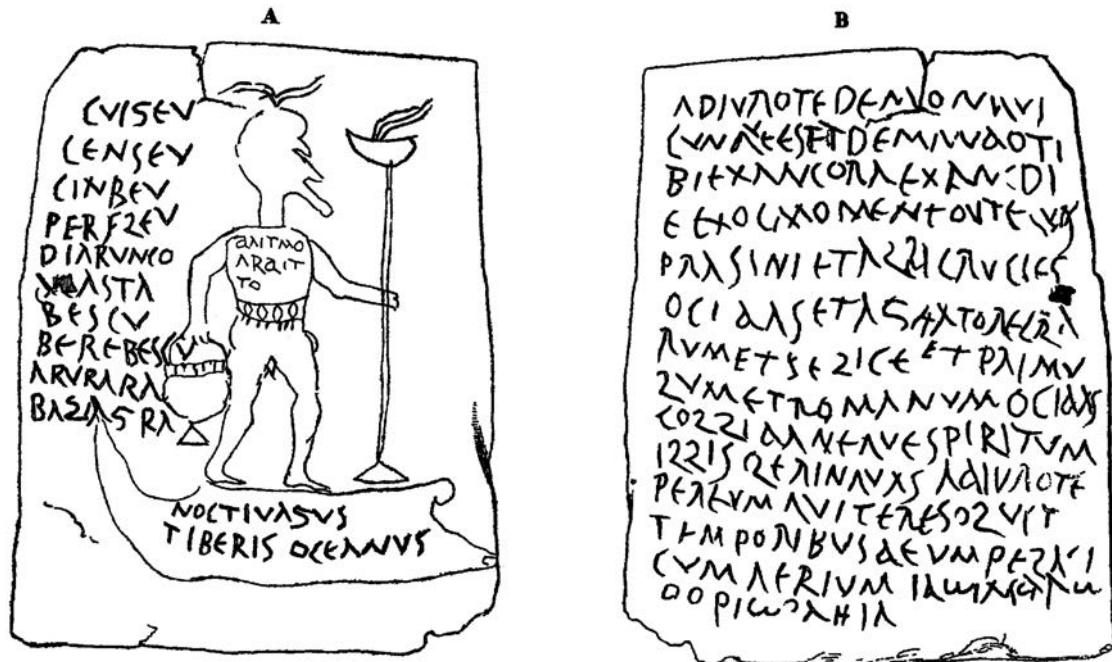 A
B
CVIGEV
CENSEV
CINBEV
PERFLEV
DIARVNCO
ASTA
BESCV
BEREBESCV
ARVRARA
BAZAGRA
aNTMO
ARaIT
TO
NOCTIVAGVS
TIBERIS OCEANVS
ADIVROTE DEMON QVI
CVNQVEESETDEMANdOTI
BIEXANCORAEXANCDI
EEXOCMOMENTOVTEQVOS
PRASINIETALBICRVCIES
OCIdASETAGITATORECLA
RVMETFELICE ET PRIMV
LVMETROMANVMOCIdAS
COLLIdANEQVESPIRITVM
ILLISLERINQVAS AdIVROTE
PEREVMQVITERESOLVIT
TEMPORIBVSdEVMPELAGI
CVMAERIVM ΙΑω ΙΑCΔΑω
OOPIω AHIA